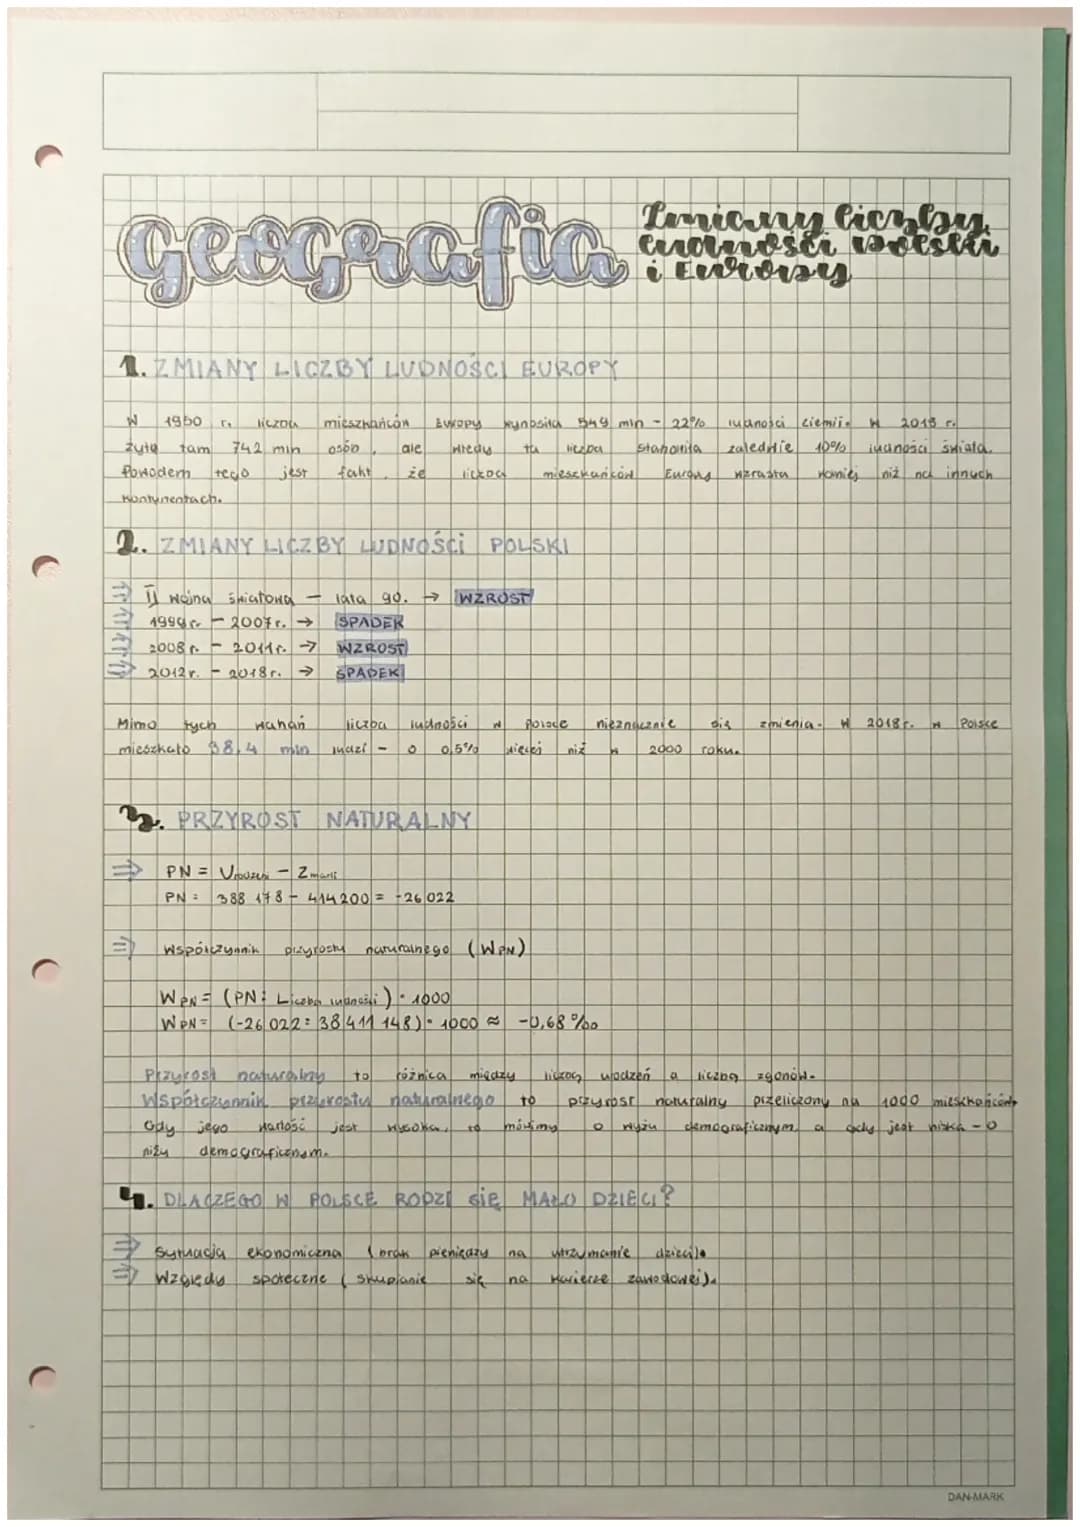 Geografia
Zmiany liczby
ludności Polski
i Europy
1. ZMIANY LICZBY LUDNOŚCI EUROPY
W 1950 r. liczba mieszkańców Europy wynosiła 549 mln - 22% ludności ziemii. W 2018 r.
żyło tam 742 mln osób, ale wtedy ta liczba stanowiła zaledwie 10% ludności świata.
Powodem tego jest fakt, że liczba mieszkańców Europy wzrasta wolniej niż na innych
kontynentach.
2. ZMIANY LICZBY LUDNOŚCI POLSKI
⇒ II wojna światowa - lata 90. → WZROST
⇒ 1999r. - 2007r. → SPADEK
⇒ 2008 r. - 2011r. → WZROST
⇒ 2012r. - 2018r. → SPADEK
Mimo tych wahań liczba ludności w Polsce nieznacznie się zmienia. W 2018r. w Polsce
mieszkało 38,4 mln ludzi - o 0,5% więcej niż w 2000 roku.
3. PRZYROST NATURALNY
⇒ PN = Urodzeni - Zmarli
PN = 388 178 - 414 200 = -26 022
⇒ Współczynnik przyrostu naturalnego (WPN)
WPN = (PN : Liczba ludności) · 1000
WPN = (-26 022 : 38 411 148) · 1000 ≈ -0,68 ‰
Przyrost naturalny to różnica między liczbą urodzeń a liczbą zgonów.
Współczynnik przyrostu naturalnego to przyrost naturalny przeliczony na 1000 mieszkańców.
Gdy jego wartość jest wysoka, to mówimy o wyżu demograficznym, a gdy jest niska - o
niżu demograficznym.
4. DLACZEGO W POLSCE RODZI SIĘ MAŁO DZIECI?
⇒ Sytuacja ekonomiczna (brak pieniędzy na utrzymanie dzieci).
⇒ Względy społeczne (skupianie się na karierze zawodowej).
DAN-MARK